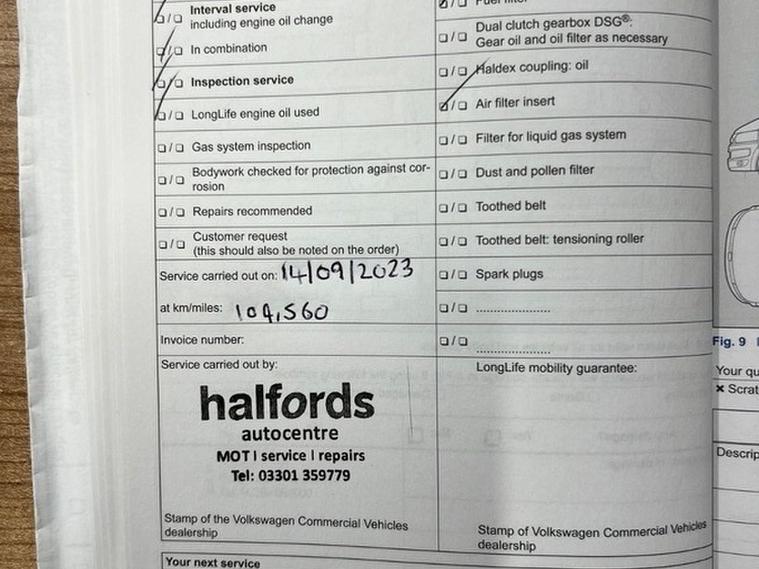 Interval service
including engine oil change
In combination
Inspection service
LongLife engine oil used
Gas system inspection
Bodywork checked for protection against cor-
rosion
Repairs recommended
Customer request
(this should also be noted on the order)
Service carried out on: 14/09/2023
at km/miles: 104,560
Invoice number:
Service carried out by:
halfords
autocentre
MOT I service I repairs
Tel: 03301 359779
Stamp of the Volkswagen Commercial Vehicles
dealership
Fuel filter
Dual clutch gearbox DSG®:
Gear oil and oil filter as necessary
Haldex coupling: oil
Air filter insert
Filter for liquid gas system
Dust and pollen filter
Toothed belt
Toothed belt: tensioning roller
Spark plugs
LongLife mobility guarantee:
Stamp of Volkswagen Commercial Vehicles
dealership
Your next service
Fig. 9
Your qu
× Scrat
Descrip